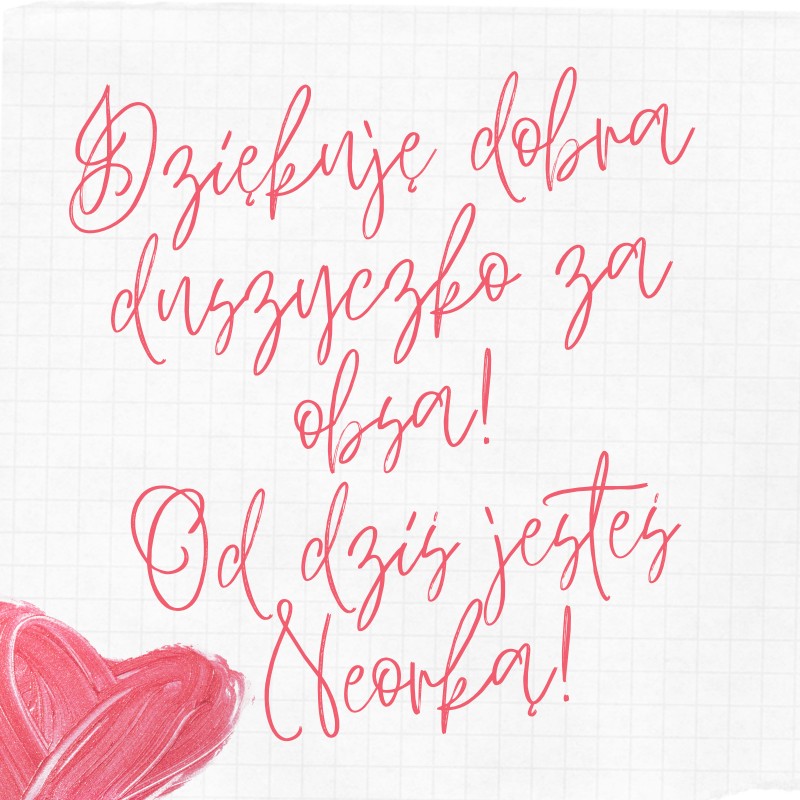 Dziękuję dobra
duszyczko za
obsa!
Od dziś jesteś
Neorką!